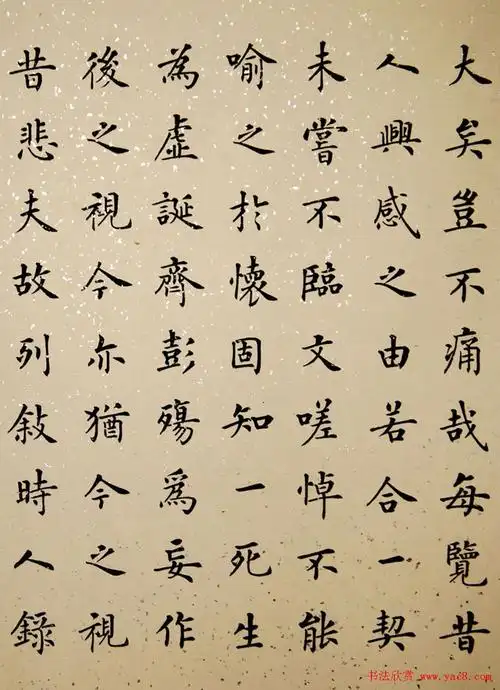 大矣豈不痛哉每覽昔
人興感之由若合一契
未嘗不臨文嗟悼不能
喻之於懷固知一死生
為虛誕齊彭殤爲妄作
後之視今亦猶今之視
昔悲夫故列敍時人錄
书法欣赏 www.yac8.com